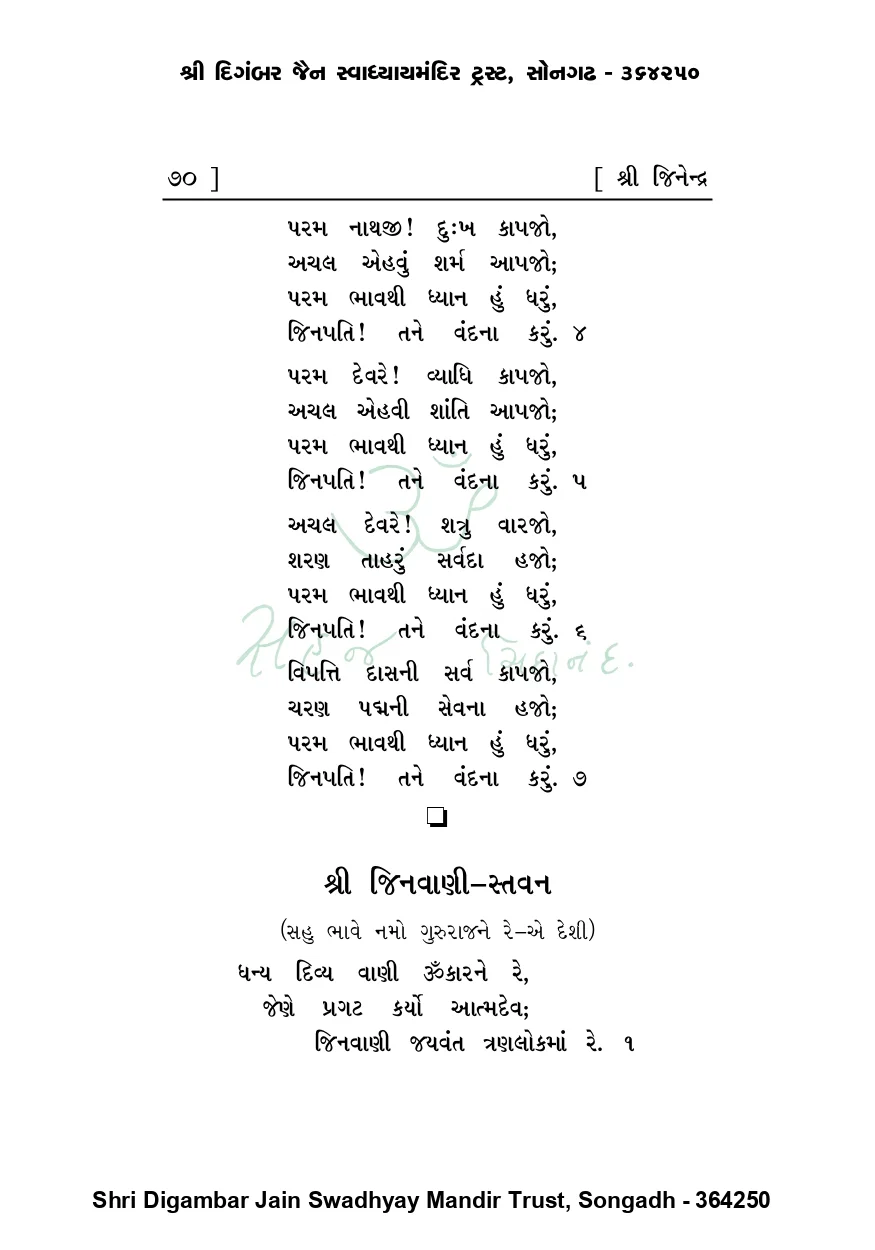 શ્રી દિગંબર જૈન સ્વાધ્યાયમંદિર ટ્રસ્ટ, સોનગઢ - ૩૬૪૨૫૦
૭૦ ] [ શ્રી જિનેન્દ્ર
પરમ નાથજી! દુઃખ કાપજો,
અચલ એહવું શર્મ આપજો;
પરમ ભાવથી ધ્યાન હું ધરું,
જિનપતિ! તને વંદના કરું. ૪
પરમ દેવરે! વ્યાધિ કાપજો,
અચલ એહવી શાંતિ આપજો;
પરમ ભાવથી ધ્યાન હું ધરું,
જિનપતિ! તને વંદના કરું. ૫
અચલ દેવરે! શત્રુ વારજો,
શરણ તાહરું સર્વદા હજો;
પરમ ભાવથી ધ્યાન હું ધરું,
જિનપતિ! તને વંદના કરું. ૬
વિપત્તિ દાસની સર્વ કાપજો,
ચરણ પદ્મની સેવના હજો;
પરમ ભાવથી ધ્યાન હું ધરું,
જિનપતિ! તને વંદના કરું. ૭
ૐ
સહજ ચિદાનંદ.
શ્રી જિનવાણી–સ્તવન
(સહુ ભાવે નમો ગુરુરાજને રે–એ દેશી)
ધન્ય દિવ્ય વાણી ૐકારને રે,
જેણે પ્રગટ કર્યો આત્મદેવ;
જિનવાણી જયવંત ત્રણલોકમાં રે. ૧
Shri Digambar Jain Swadhyay Mandir Trust, Songadh - 364250